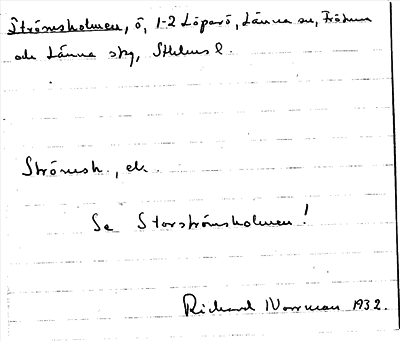 Strömsholmen, ö, 1-2 Löparö, Länna sn, Frötuna
och Länna skg, Sthlms l.
Strömsh., ek.
Se Storströmsholmen!
Richard Norrman 1932.